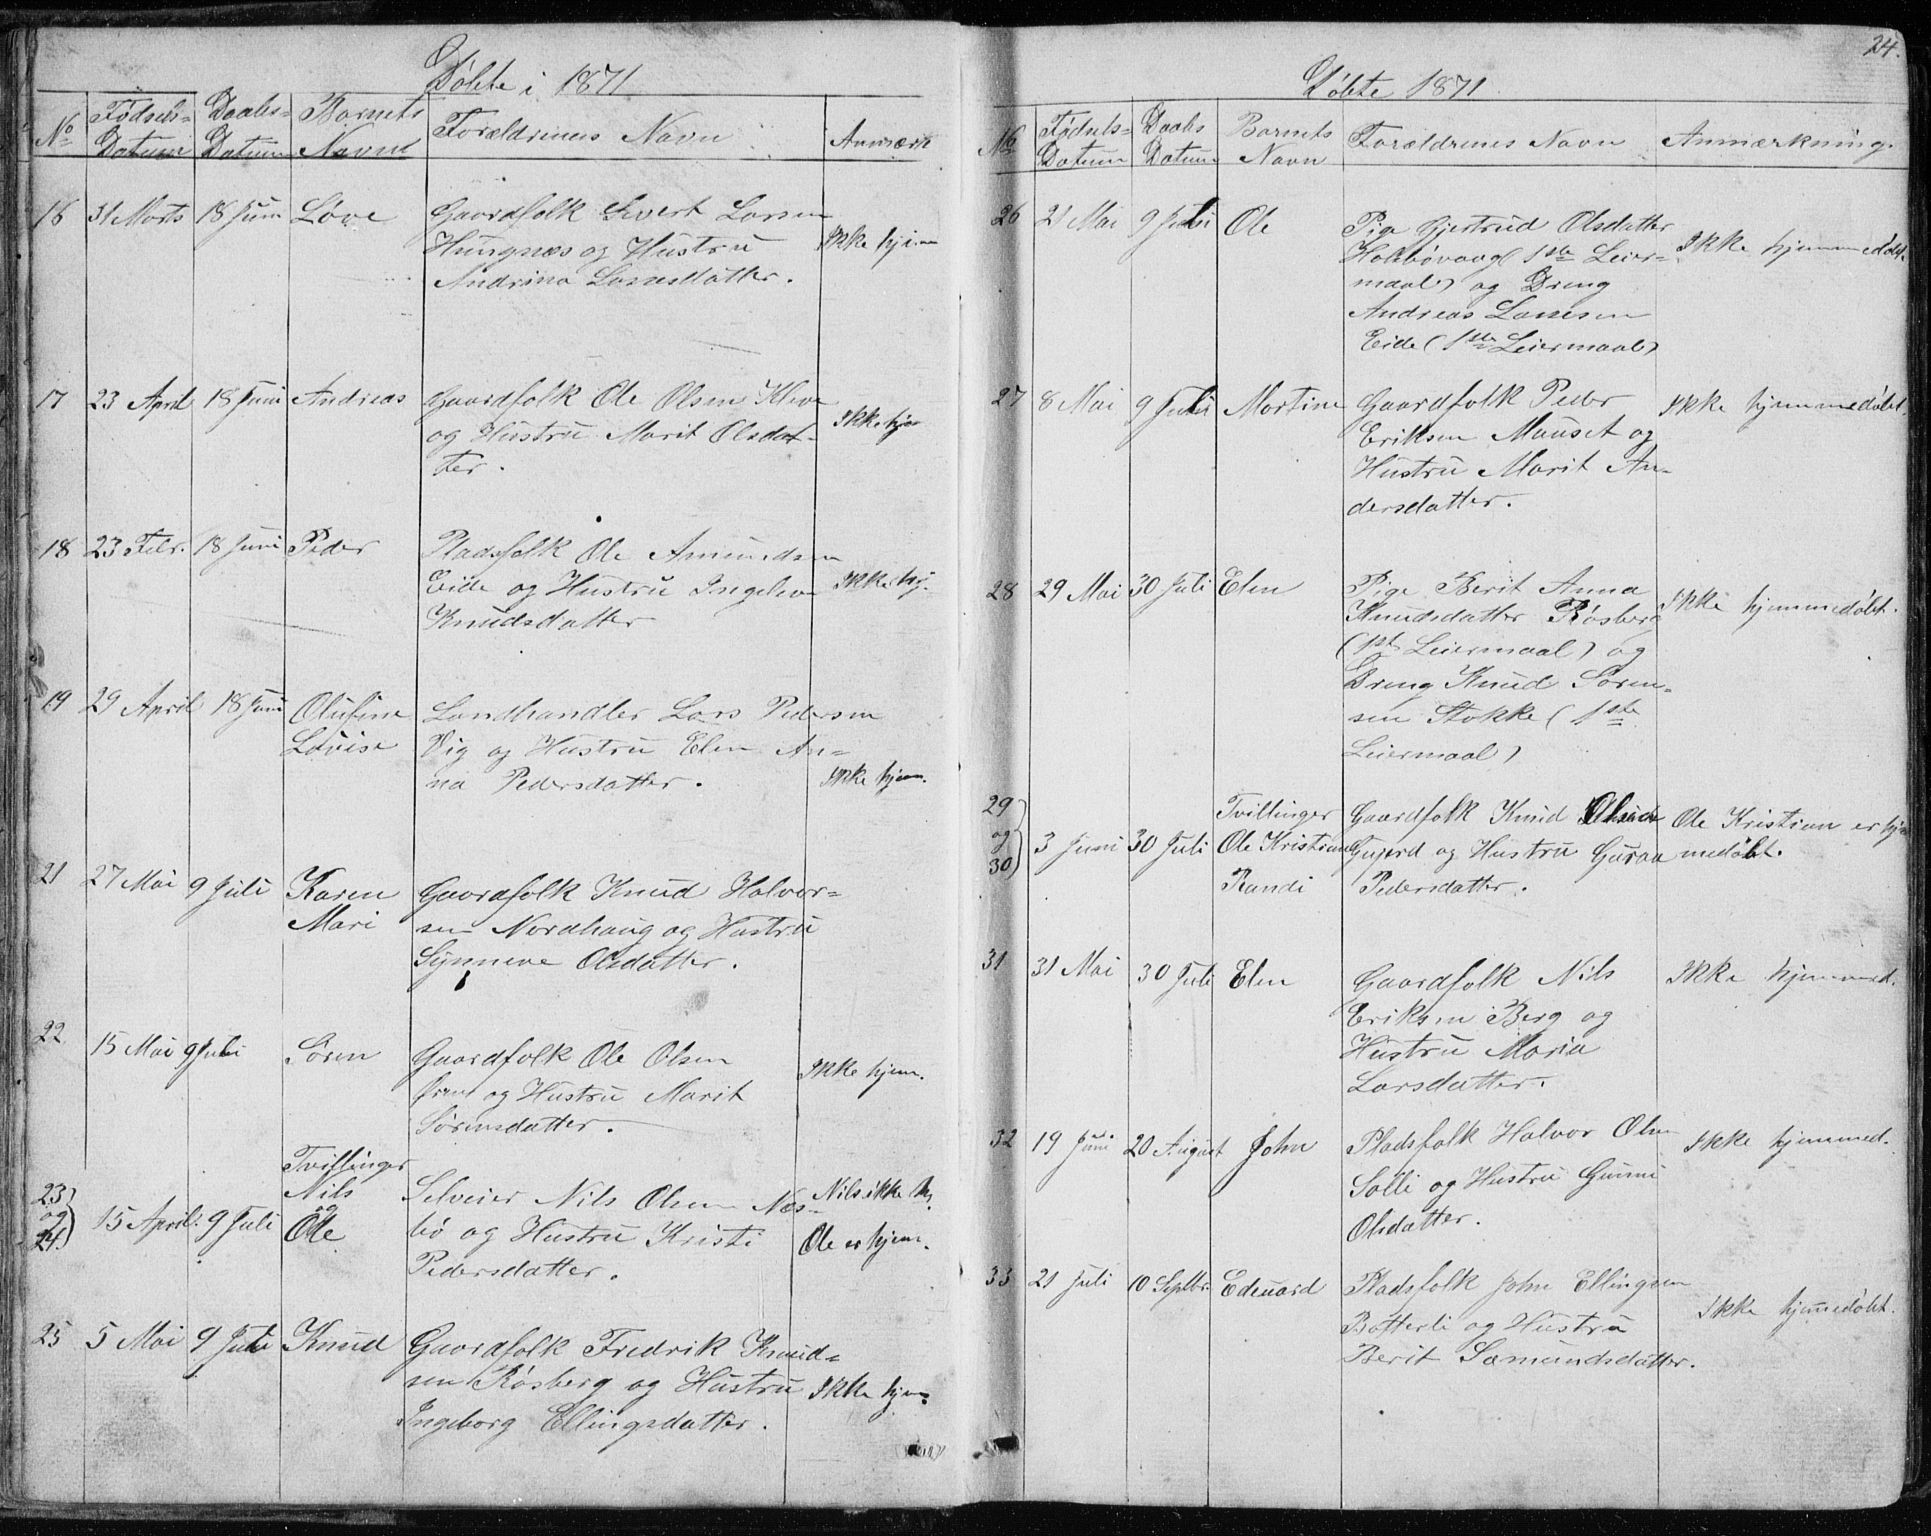 24.
Döbte i 1871
No Fødsels- Daabs- Barnets Forældrenes Navn Anmærk
Datum Datum Navn
16 31 Marts 18 Juni Løve Gaardfolk Sivert Larsen
Hungnæs og Hustru Ikke hjem
Andrina Larsdatter.
17 23 April 18 Juni Andreas Gaardfolk Ole Olsen Kleve
og Hustru Marit Olsdat- Ikke hjem
ter.
18 23 Febr. 18 Juni Peder Pladsfolk Ole Amundsen
Eide og Hustru Ingelev Ikke hj.
Knudsdatter
19 29 April 18 Juni Olufine Landhandler Lars Pedersen
Lovise Vig og Hustru Elen An-
na Pedersdatter. Ikke hjem.
21 27 Mai 9 Juli Karen Gaardfolk Knud Halvor-
Mari sen Nordhaug og Hustru
Synneve Olsdatter.
22 15 Mai 9 Juli Søren Gaardfolk Ole Olsen Ikke hjem.
og Hustru Marit
Sørensdatter.
Tvillinger
23 Nils Selveier Nils Olsen Næs- Nils ikke hj.
og 15 April. 9 Juli og bø og Hustru Kristi
24. Ole Pedersdatter. Ole er hjem.
25 5 Mai 9 Juli Knud Gaardfolk Fredrik Knud-
sen Røsberg og Hustru Ikke hjem
Ingeborg Ellingsdatter.
Döbte 1871.
No Fødsels- Daabs Barnets Forældrenes Navn Anmærkning.
Datum Datum Navn
26 21 Mai 9 Juli Ole Pige Gjertrud Olsdatter
Holsbøvaag (1ste Leier- Ikke hjemmedøbt.
maal) og Dreng
Andreas Larsen
Eide (1ste Leiermaal)
27 8 Mai 9 Juli Martine Gaardfolk Peder Ikke hjemmedøbt.
Eriksen Mauset og
Hustru Marit An-
dersdatter.
28 29 Mai 30 Juli Elen Pige Berit Anna
Knudsdatter Røsberg Ikke hjemmedøbt.
(1ste Leiermaal) og
Dreng Knud Sören-
sen Stokke (1ste
Leiermaal)
29 Tvillinger Gaardfolk Knud Olsen Ole Kristian er hjem
og 3 Juni 30 Juli Ole Kristian og Hustru Guraa medøbt.
30) Randi Pedersdatter.
31 31 Mai 30 Juli Elen Gaardfolk Nils Ikke hjemmed.
Eriksen Berg og
Hustru Maria
Larsdatter.
32 19 Juni 20 August John Pladsfolk Halvor Olsen Ikke hjemmed.
Solli og Hustru Gunni
Olsdatter.
33 21 Juli 10 Septbr. Edevard Pladsfolk John Ellingsen
Botterli og Hustru Ikke hjemedøbt.
Berit Samundsdatter.